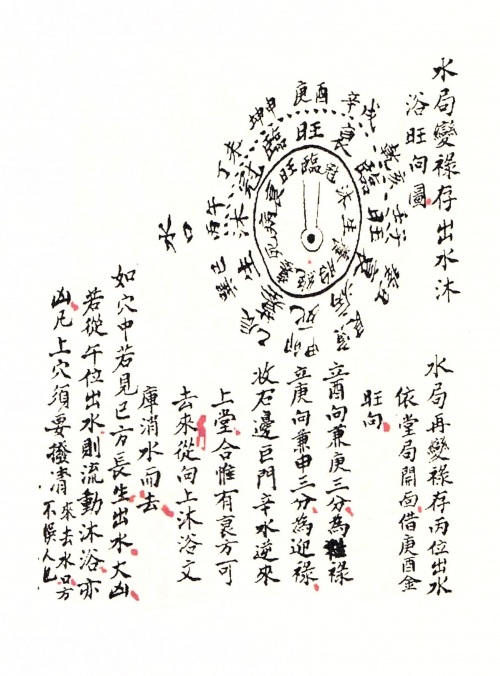 水局變祿存出水沐
浴旺向圖
水局再變祿存丙位出水
依堂局開面借庚酉金
旺向
立酉向兼庚三分為祿
立庚向兼申三分為迎祿
收右邊巨門辛水逆來
上堂合惟有衰方可
去來從向上沐浴文
庫消水而去
如穴中若見巳方長生出水大凶
若從午位出水則流動沐浴亦
凶凡上穴須要撥清來去水口方
不悞人也
庚酉
辛
坤申
丁未
丙午
水口
旺
衰
臨
冠
沐
生
臨
旺
衰
病
死
旺
臨
冠
沐
生
衰
病
死